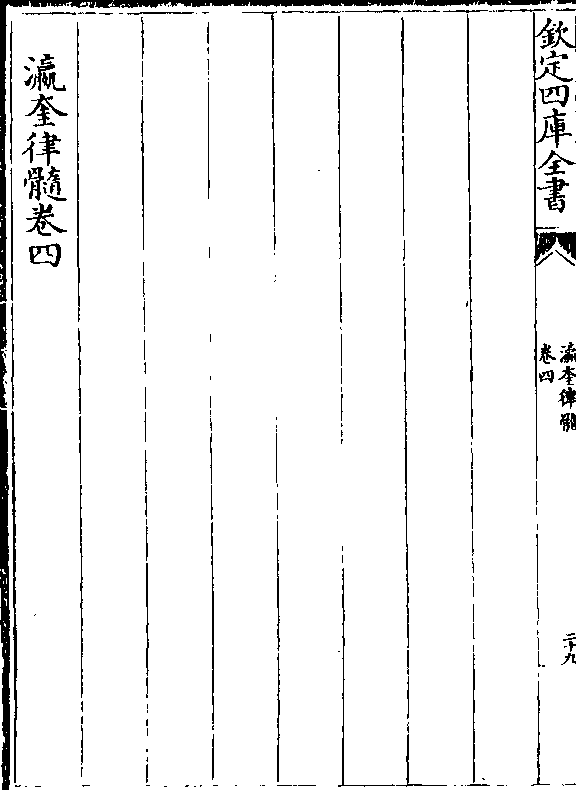 欽定四庫全書
瀛奎律髓
卷四
二十九
瀛奎律髓卷四